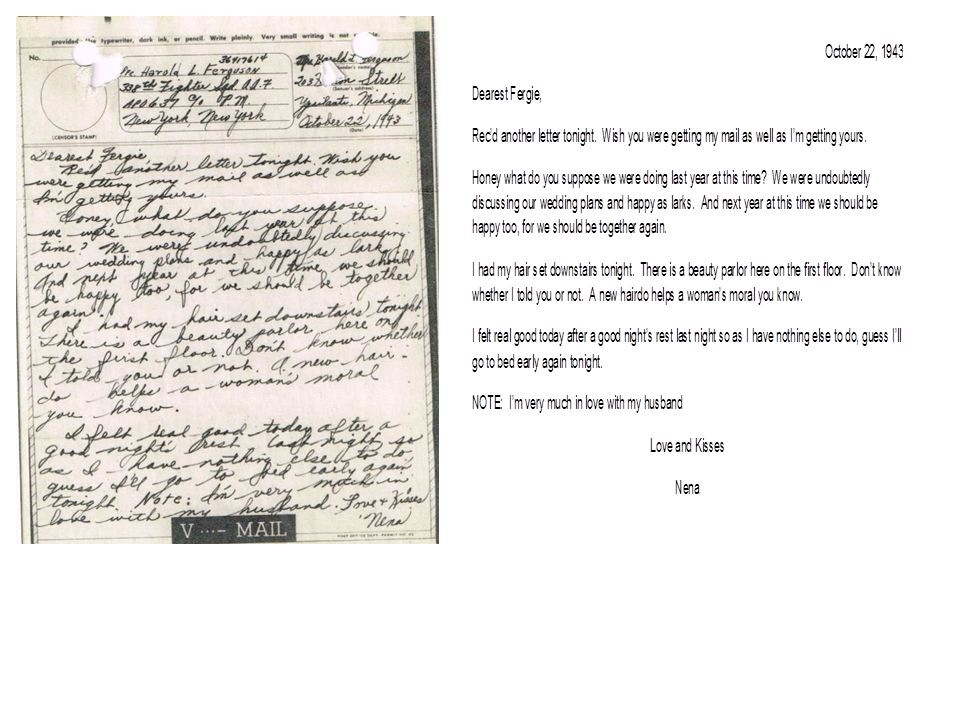 provided the typewriter, dark ink, or pencil. Write plainly. Very small writing is not
No.
36417614
Pvt. Harold L. Ferguson
338th Fighter Sqd. A.A.F.
APO 637 c/o P.M.
New York, New York
(CENSOR'S STAMP)
Mrs. Harold L. Ferguson
(Sender's name)
203 Street
(Sender's address)
Ypsilanti, Michigan
October 22, 1943
(Date)
Dearest Fergie,
Rec'd another letter tonight. Wish you
were getting my mail as well as
I'm getting yours.
Honey what do you suppose
we were doing last year at this
time? We were undoubtedly discussing
our wedding plans and happy as larks.
And next year at this time we should
be happy too, for we should be together
again.
I had my hair set downstairs tonight.
There is a beauty parlor here on
the first floor. Don't know whether
I told you or not. A new hair-
do helps a woman's moral
you know.
I felt real good today after a
good night's rest last night so
as I have nothing else to do,
guess I'll go to bed early again
tonight. Note: I'm very much in
love with my husband. Love & Kisses
Nena
V ...- MAIL
POST OFFICE DEPT. PERMIT NO.
October 22, 1943
Dearest Fergie,
Rec'd another letter tonight. Wish you were getting my mail as well as I'm getting yours.
Honey what do you suppose we were doing last year at this time? We were undoubtedly
discussing our wedding plans and happy as larks. And next year at this time we should be
happy too, for we should be together again.
I had my hair set downstairs tonight. There is a beauty parlor here on the first floor. Don't know
whether I told you or not. A new hairdo helps a woman's moral you know.
I felt real good today after a good night's rest last night so as I have nothing else to do, guess I'll
go to bed early again tonight.
NOTE: I'm very much in love with my husband
Love and Kisses
Nena